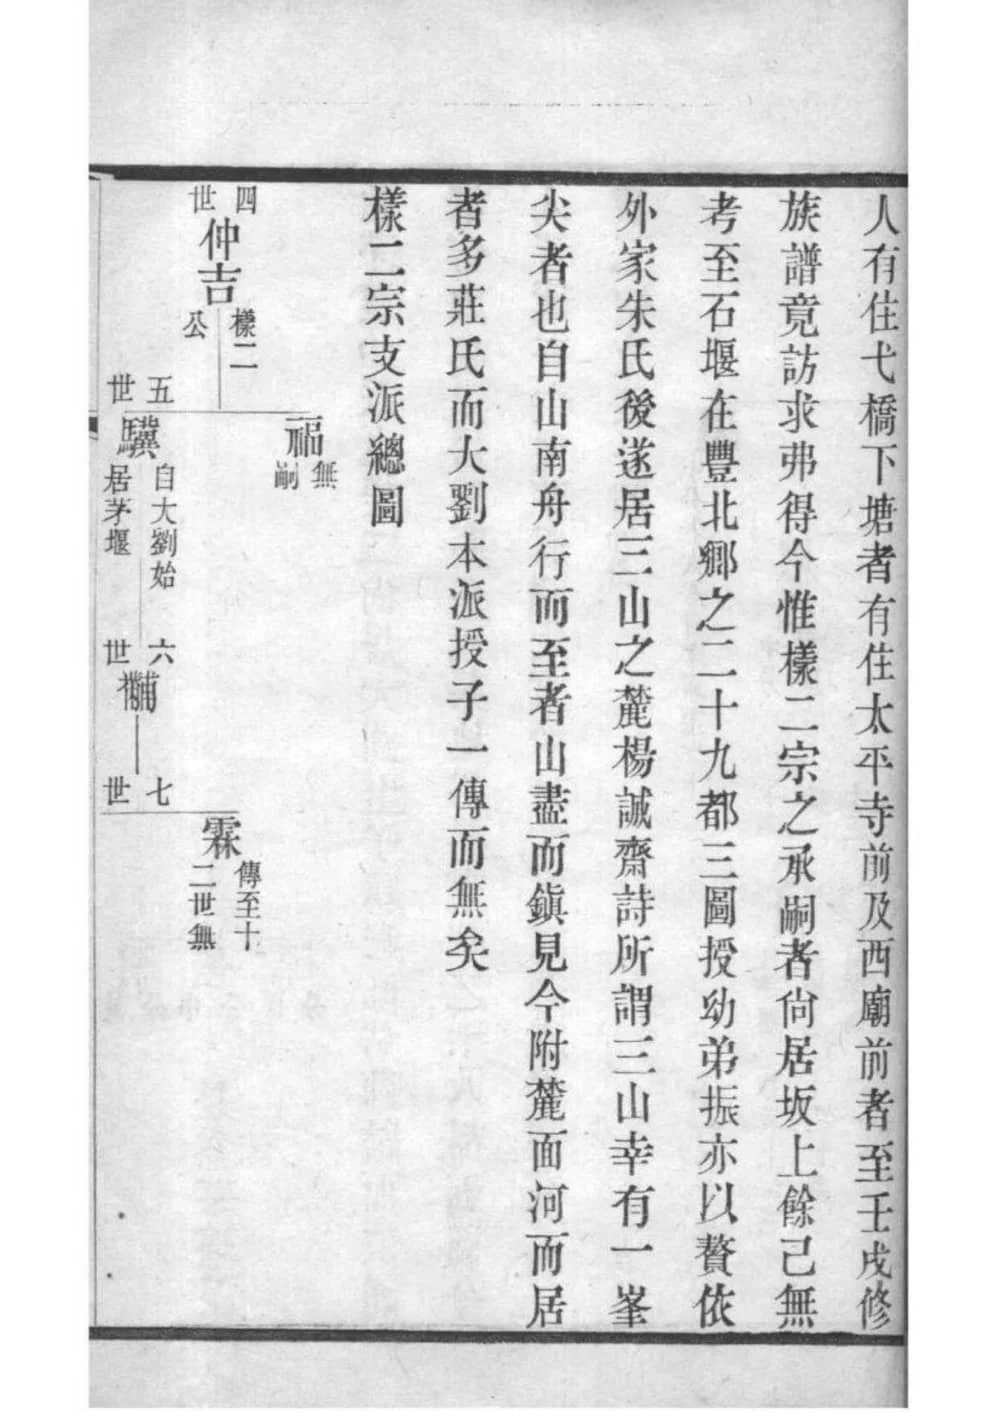 人有住弋橋下塘者有住太平寺前及西廟前者至壬戌修
族譜竟訪求弗得今惟樣二宗之承嗣者尙居坂上餘己無
考至石堰在豐北鄉之二十九都三圖授幼弟振亦以贅依
外家朱氏後遂居三山之麓楊誠齋詩所謂三山幸有一峯
尖者也自山南舟行而至者山盡而鎭見今附麓面河而居
者多莊氏而大劉本派授子一傳而無矣
樣二宗支派總圖
四世
仲吉
樣二公
福
無嗣
五世
驥
自大劉始居茅堰
六世
黼
七世
霖
傳至十二世無